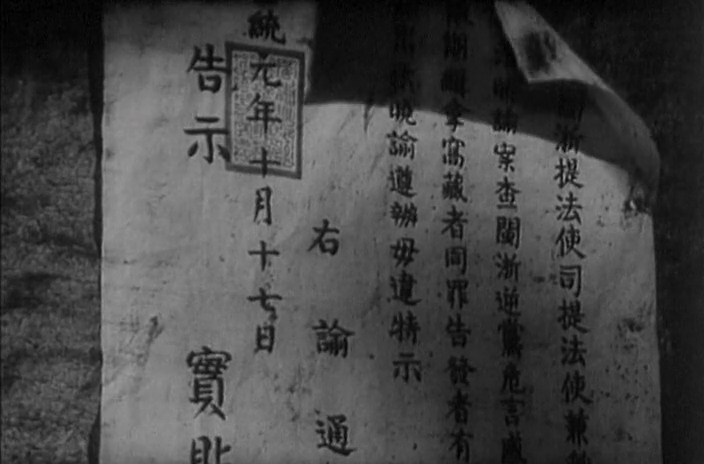 閩浙提法使司提法使兼
曉諭案查閩浙逆黨危言
期緝拿窩藏者同罪告發者有
曉諭遵辦毋違特示
右諭通
統元年十月十七日
告示 實貼